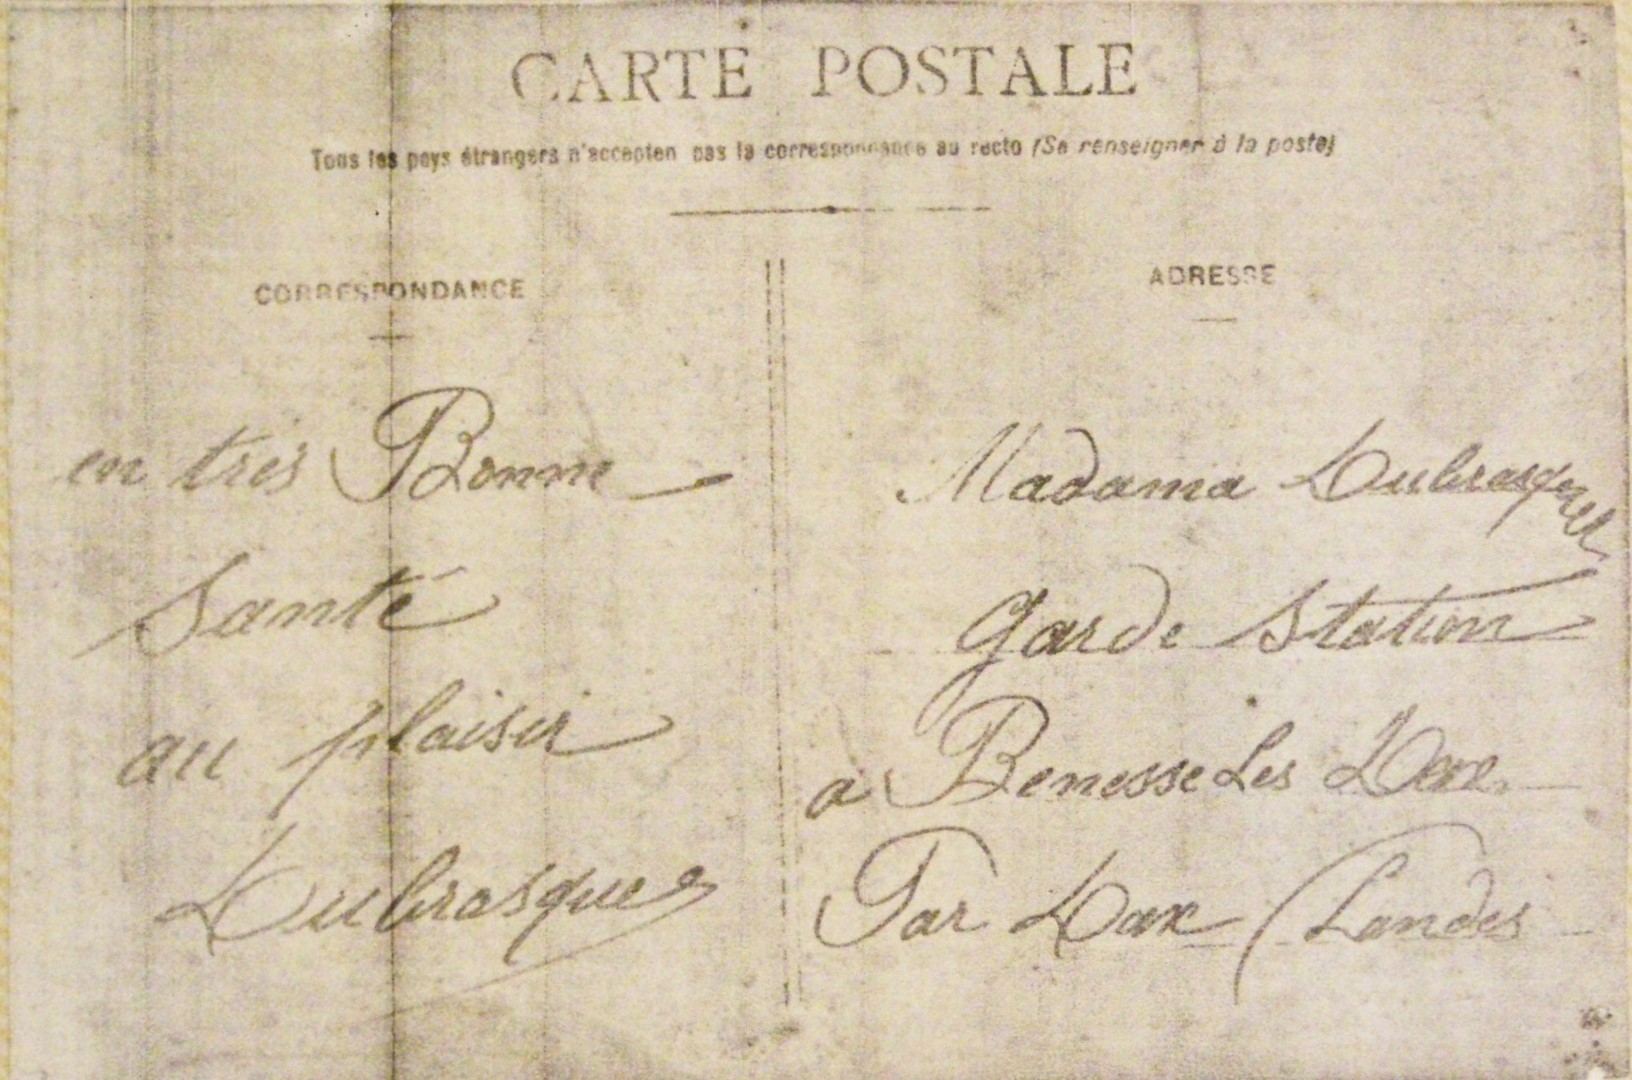 CARTE POSTALE
Tous les pays étrangers n'accepten pas la correspondance au recto (Se renseigner à la poste)
CORRESPONDANCE
en très Bonne
Santé
au plaisir
Dubrasquet
ADRESSE
Madama Dubrasquet
Garde Station
a Benesse Les Dax
Par Dax (Landes